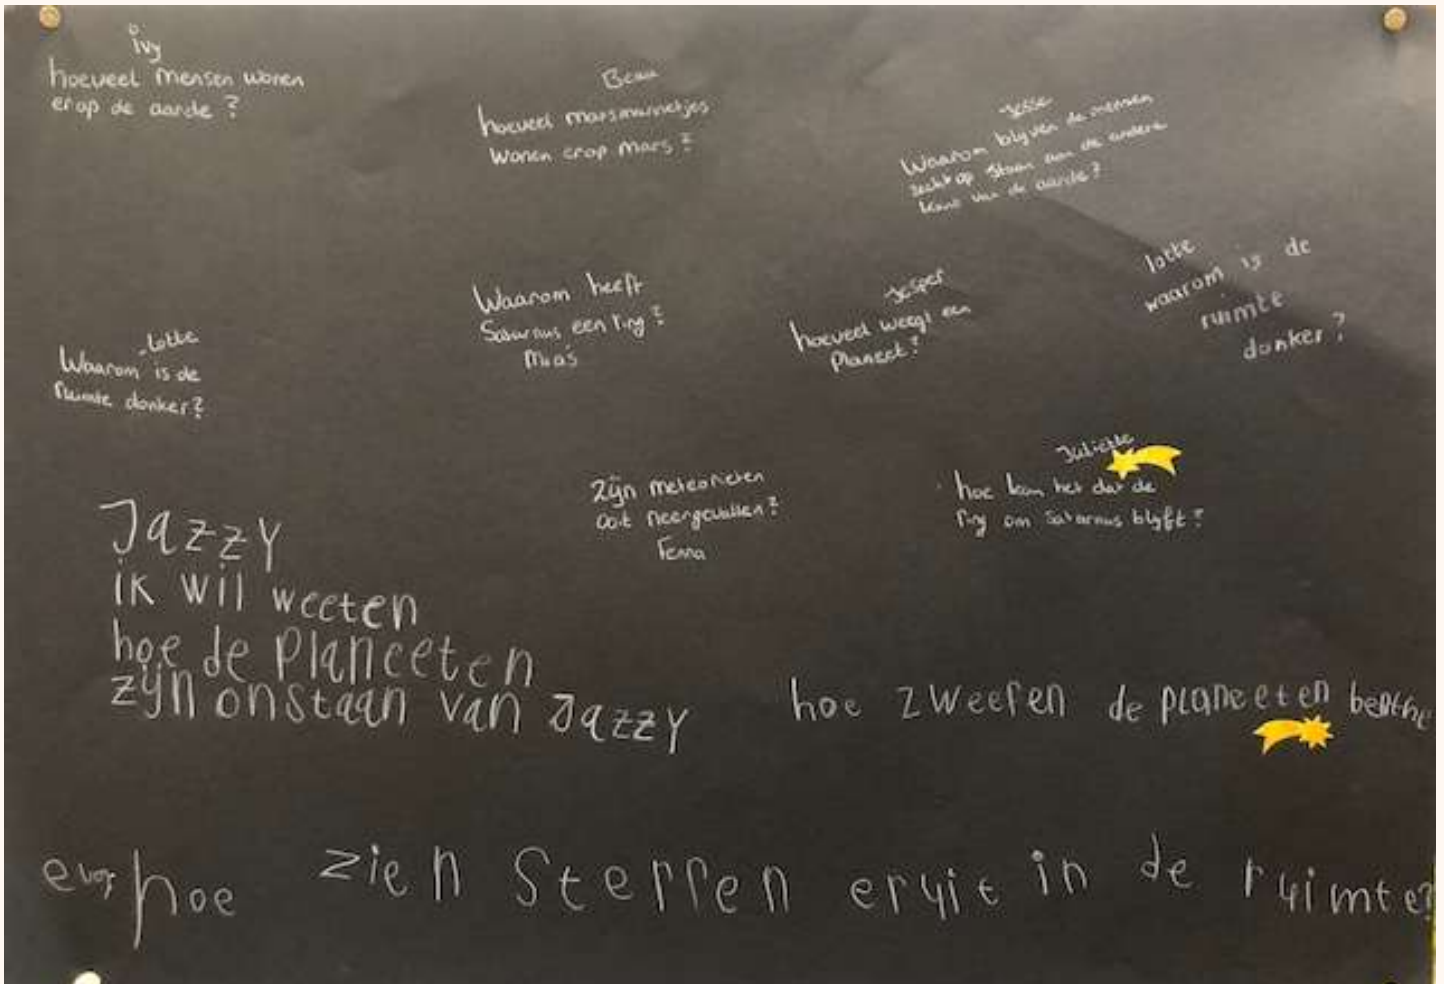 Ivy
hoeveel mensen wonen
er op de aarde?
Beau
hoeveel marsmannetjes
wonen erop mars?
Jesse
Waarom blyven de mensen
recht op staan aan de andere
kant van de aarde?
Waarom heeft
Saturnus een ring?
Maas
Jesper
hoeveel weegt een
Planeet?
lotte
waarom is de
ruimte
donker?
Lotte
Waarom is de
Ruimte donker?
Zijn meteorieten
ooit neergevallen?
Fenna
Juliette
hoe kan het dat de
ring om Saturnus blyft?
Jazzy
ik wil weeten
hoe de planeeten
zijn onstaan van Jazzy
hoe zweefen de planeeten
hoe zien sterren eruit in de ruimte?